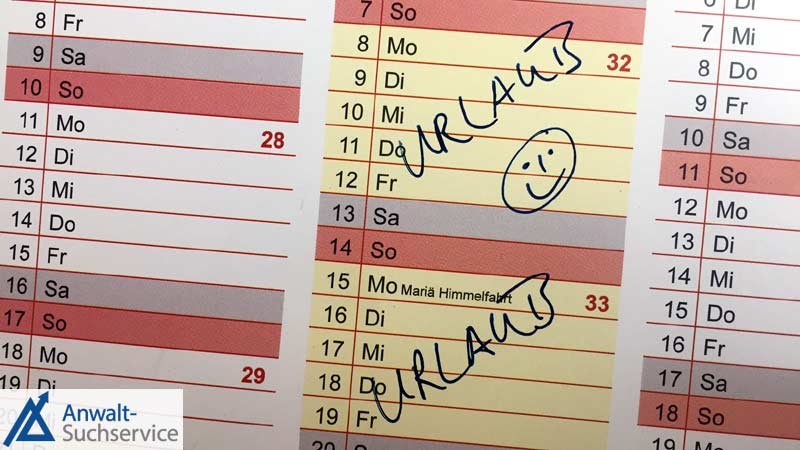 8 Fr
9 Sa
10 So
11 Mo 28
12 Di
13 Mi
14 Do
15 Fr
16 Sa
17 So
18 Mo 29
19 Di
7 So
8 Mo 32
9 Di
10 Mi
11 Do
12 Fr
URLAUB
13 Sa
14 So
15 Mo Mariä Himmelfahrt 33
16 Di
17 Mi
18 Do
19 Fr
URLAUB
20 So
6 Di
7 Mi
8 Do
9 Fr
10 Sa
11 So
12 Mo
13 Di
14 Mi
15 Do
16 Fr
17 Sa
18 So
19 Mo
Anwalt-
Suchservice